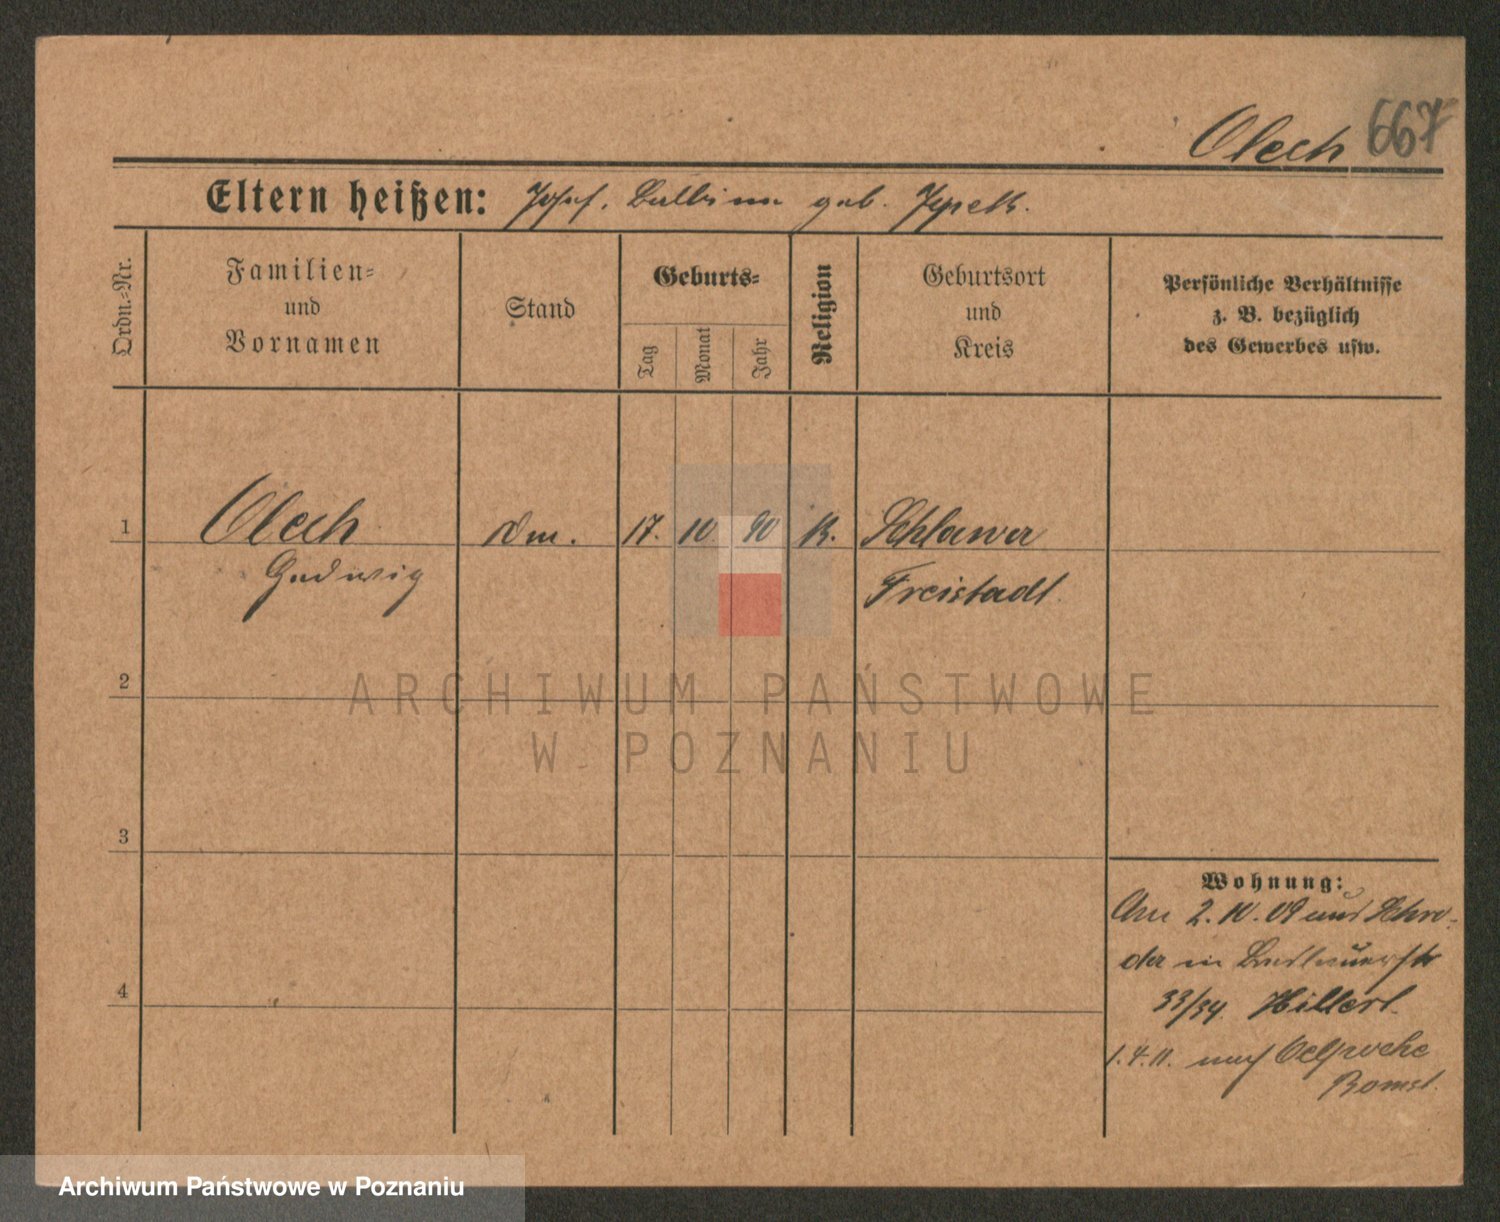 Olech 667
Eltern heißen: Josef, Balbina geb.
Ordn.-Nr.
Familien-
und
Vornamen
Stand
Geburts-
Tag
Monat
Jahr
Religion
Geburtsort
und
Kreis
Persönliche Verhältnisse
z. B. bezüglich
des Gewerbes usw.
1
Olech
Hedwig
Dm.
17. 10 90
K.
Schlawa
Freistadt.
2
ARCHIWUM PAŃSTWOWE
W POZNANIU
3
4
Wohnung:
Am 2. 10. 09 aus Schro-
da in
33/34. Hillert.
1. 4. 11. nach
Bomst.
Archiwum Państwowe w Poznaniu